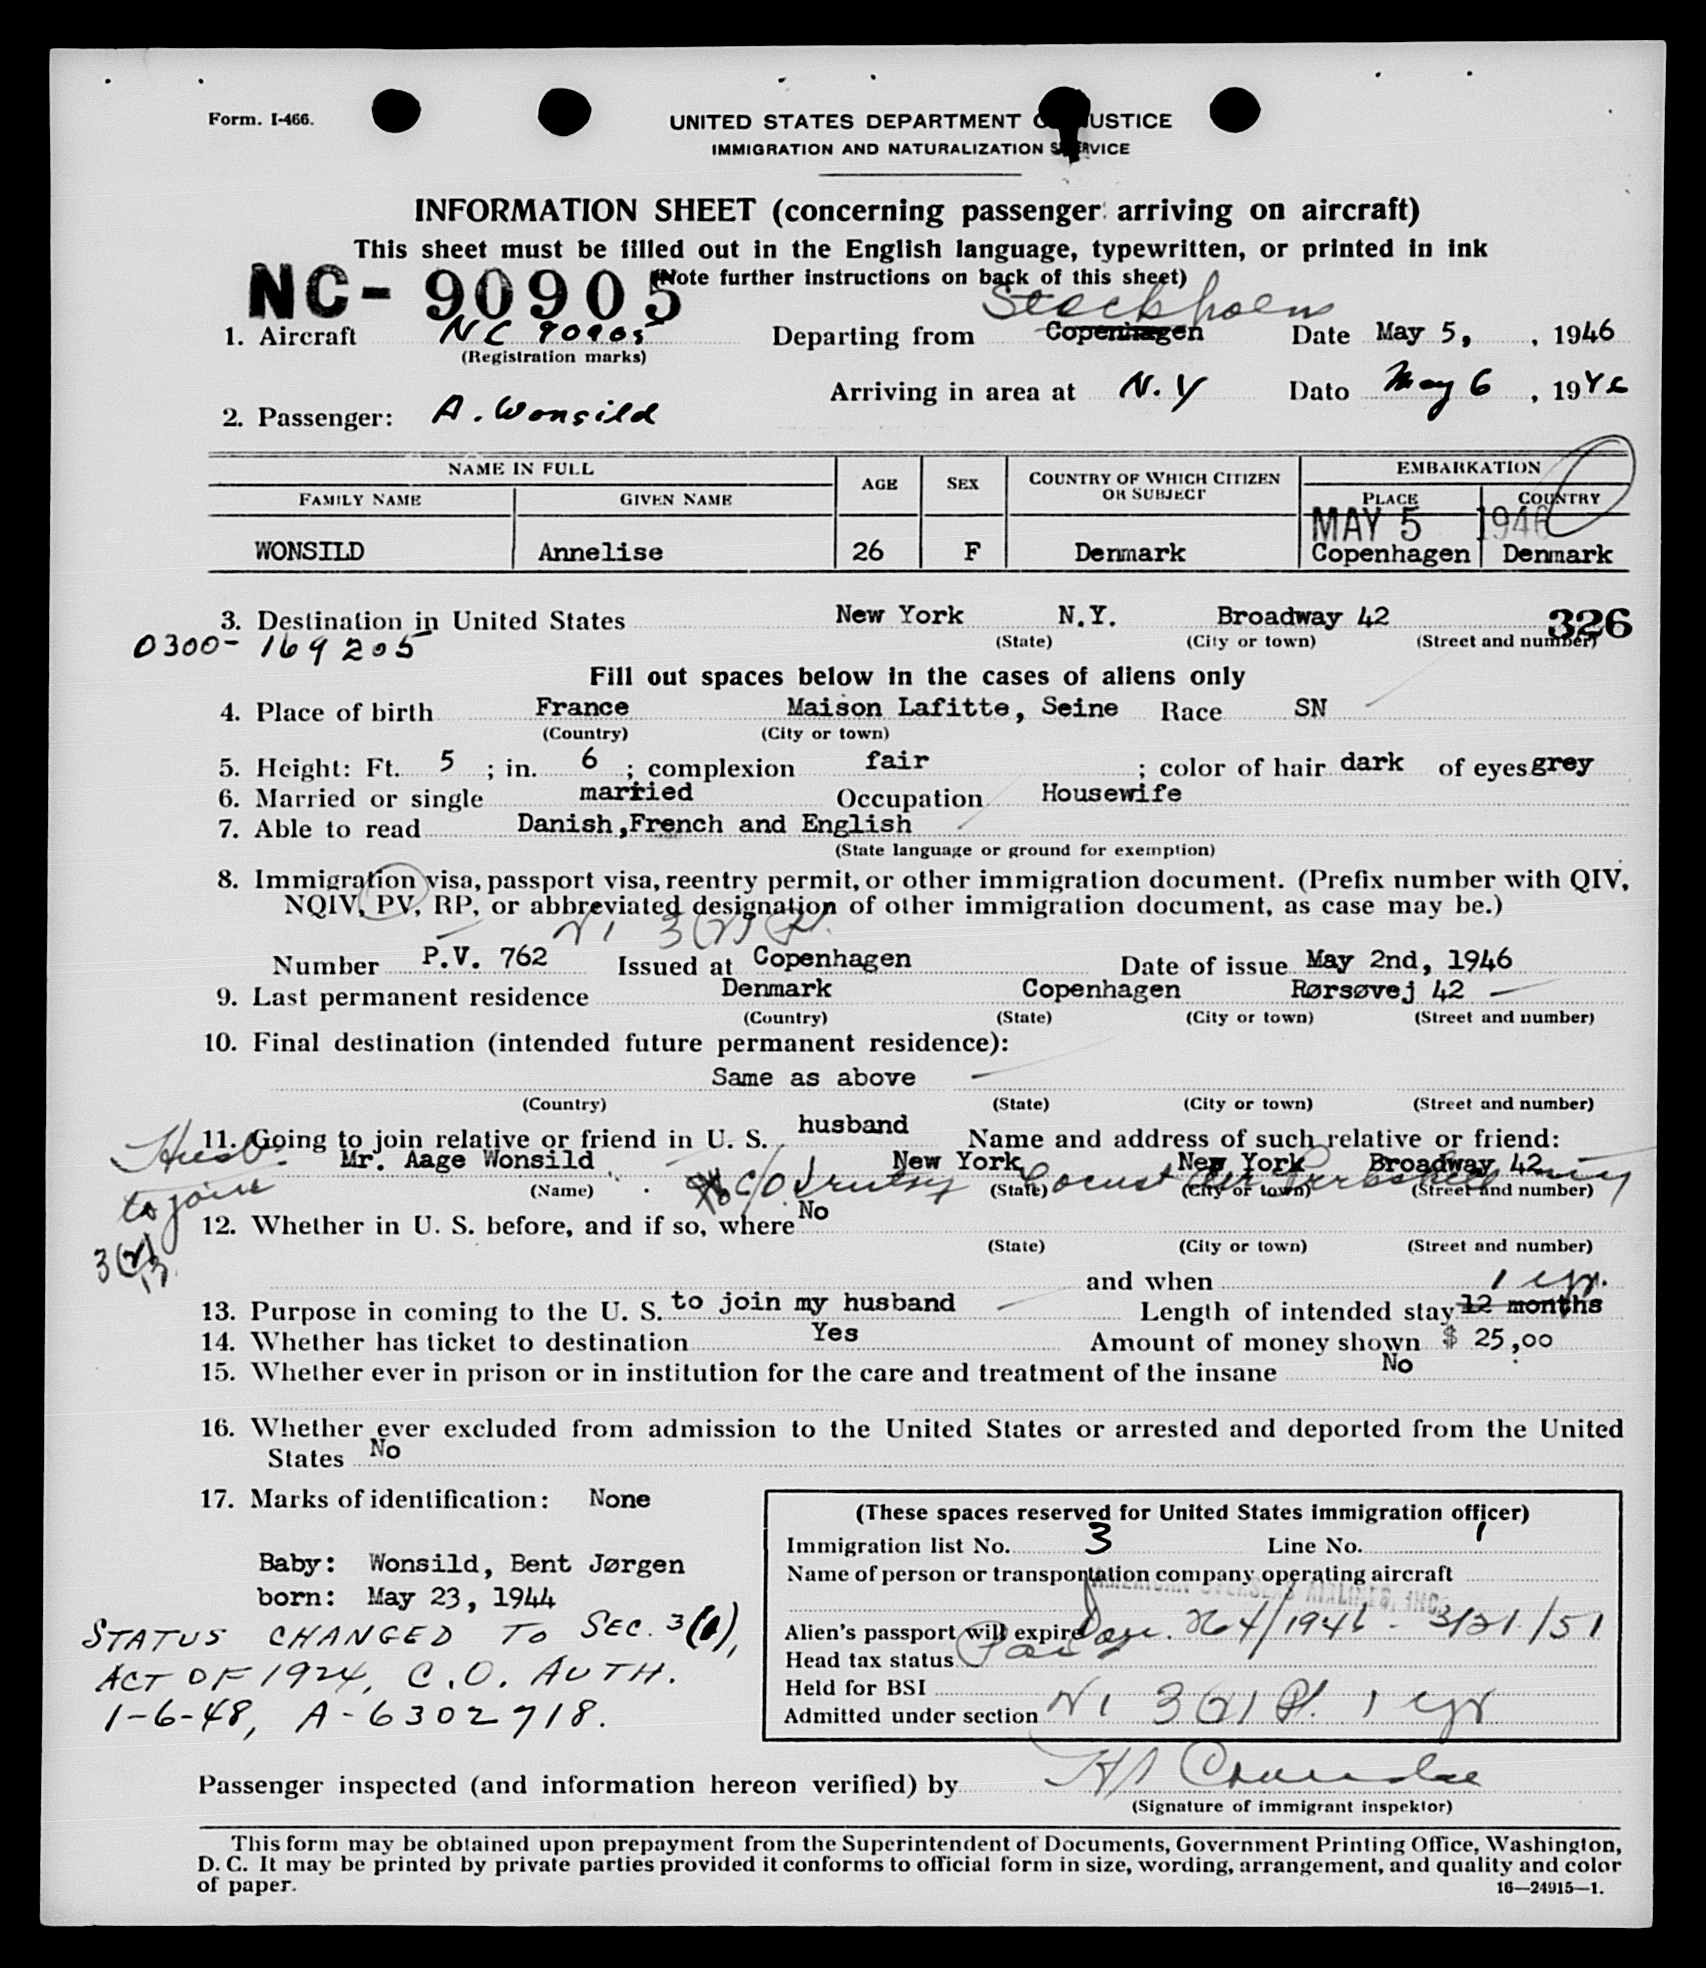 Form. I-466.
UNITED STATES DEPARTMENT OF JUSTICE
IMMIGRATION AND NATURALIZATION SERVICE
INFORMATION SHEET (concerning passenger arriving on aircraft)
This sheet must be filled out in the English language, typewritten, or printed in ink
(Note further instructions on back of this sheet)
NC-90905
Stockholm
1. Aircraft NC 90905 Departing from Copenhagen Date May 5, , 1946
(Registration marks)
Arriving in area at N.Y Dato May 6 , 1946
2. Passenger: A. Wonsild
NAME IN FULL AGE SEX COUNTRY OF WHICH CITIZEN OR SUBJECT EMBARKATION
FAMILY NAME GIVEN NAME PLACE COUNTRY
MAY 5 1946
WONSILD Annelise 26 F Denmark Copenhagen Denmark
3. Destination in United States New York N.Y. Broadway 42 326
(State) (City or town) (Street and number)
0300-169205
Fill out spaces below in the cases of aliens only
4. Place of birth France Maison Lafitte, Seine Race SN
(Country) (City or town)
5. Height: Ft. 5 ; in. 6 ; complexion fair ; color of hair dark of eyes grey
6. Married or single married Occupation Housewife
7. Able to read Danish,French and English
(State language or ground for exemption)
8. Immigration visa, passport visa, reentry permit, or other immigration document. (Prefix number with QIV,
NQIV, PV, RP, or abbreviated designation of other immigration document, as case may be.)
3(2)
Number P.V. 762 Issued at Copenhagen Date of issue May 2nd, 1946
9. Last permanent residence Denmark Copenhagen Rørsøvej 42
(Country) (State) (City or town) (Street and number)
10. Final destination (intended future permanent residence):
Same as above
(Country) (State) (City or town) (Street and number)
11. Going to join relative or friend in U. S. husband Name and address of such relative or friend:
Husb. Mr. Aage Wonsild New York New York Broadway 42
(Name) (State) (City or town) (Street and number)
C/O Locust
to join
12. Whether in U. S. before, and if so, where No
(State) (City or town) (Street and number)
3(2)
and when
1 yr.
13. Purpose in coming to the U. S. to join my husband Length of intended stay 12 months
14. Whether has ticket to destination Yes Amount of money shown $ 25,00
15. Whether ever in prison or in institution for the care and treatment of the insane No
16. Whether ever excluded from admission to the United States or arrested and deported from the United
States No
17. Marks of identification: None
Baby: Wonsild, Bent Jørgen
born: May 23, 1944
STATUS CHANGED TO SEC. 3(1),
ACT OF 1924, C.O. AUTH.
1-6-48, A-6302718.
(These spaces reserved for United States immigration officer)
Immigration list No. 3 Line No. 1
Name of person or transportation company operating aircraft
AMERICAN OVERSEAS AIRLINES, INC.
Alien's passport will expire 3/21/51
Head tax status Paid
Held for BSI
Admitted under section 3(2) 1 yr
Passenger inspected (and information hereon verified) by
(Signature of immigrant inspektor)
This form may be obtained upon prepayment from the Superintendent of Documents, Government Printing Office, Washington,
D. C. It may be printed by private parties provided it conforms to official form in size, wording, arrangement, and quality and color
of paper.
16—24915—1.